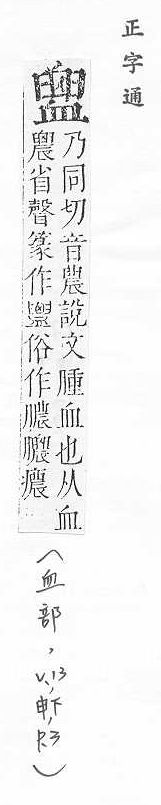 正字通
𧗕
乃同切音農說文腫血也从血
農省聲篆作俗作膿癑
(血部,V.13,申下,P.3)